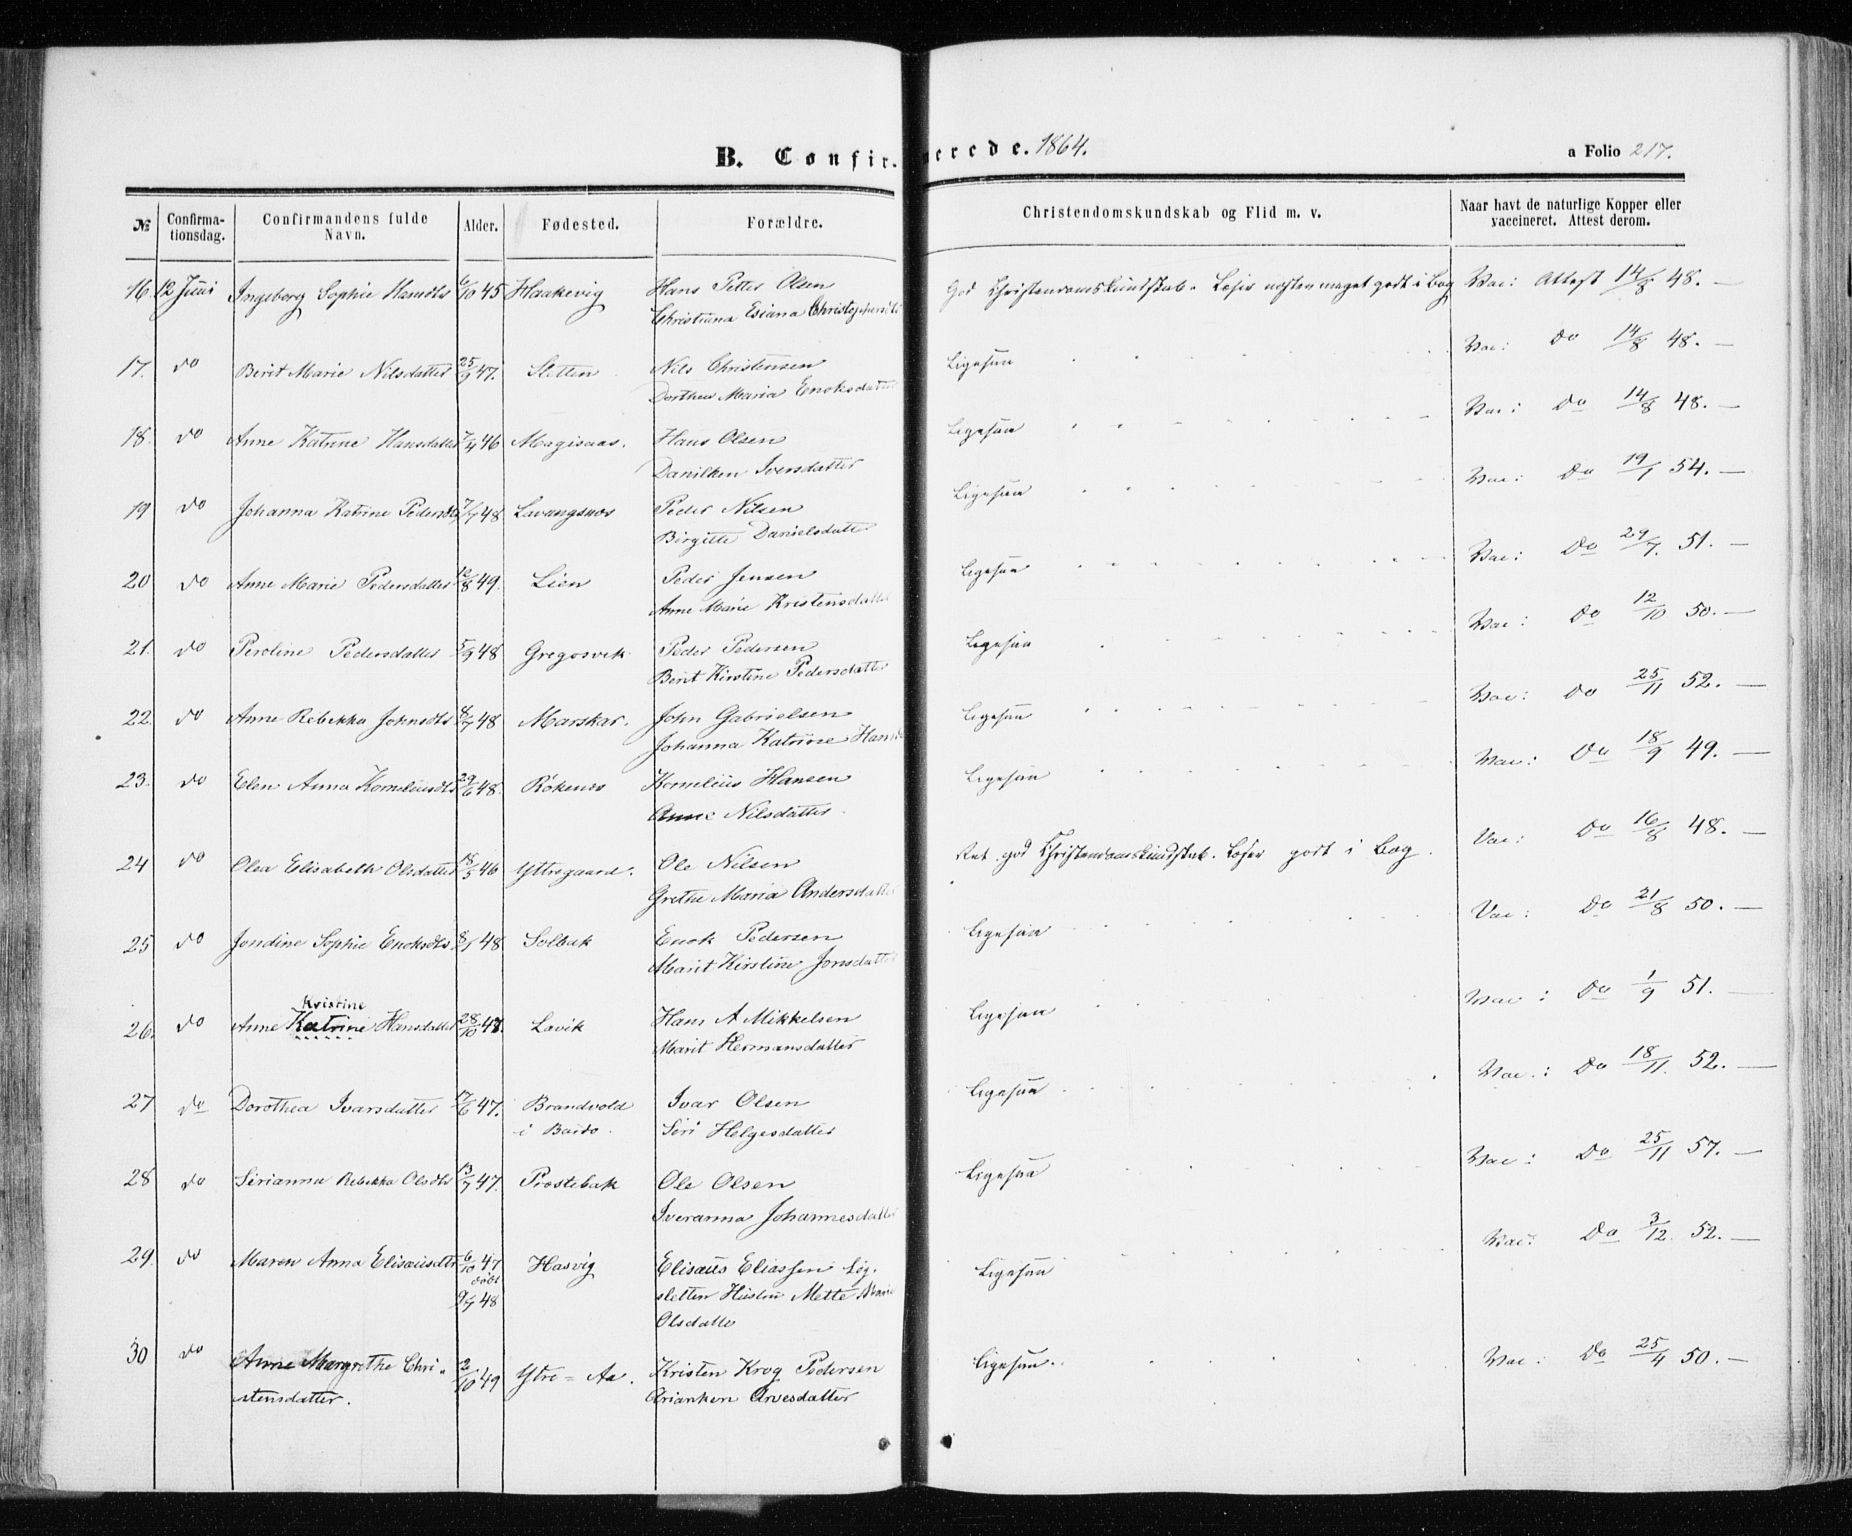 B. Confirmerede. 1864.
a Folio 217.
№ Confirma-tionsdag. Confirmandens fulde Navn. Alder. Fødested. Forældre. Christendomskundskab og Flid m. v. Naar havt de naturlige Kopper eller vaccineret. Attest derom.
16 12 Juni Ingeborg Sophie Hansdtr 6/10 45 Haakevig Hans Petter Olsen God Christendomskundskab. Læser næsten meget godt i Bog Vac: Attest 14/8 48. —
Christiana Esiana Christophersdtr
17. do Berit Marie Nilsdatter 25/9 47. Sletten Nils Christensen Ligesaa Vac: Do 14/8 48. —
Dorthea Maria Enoksdatter
18. do Anne Katrine Hansdatter 7/4 46 Magisaas. Hans Olsen Ligesaa Vac: Do 14/8 48. —
Daniken Iversdatter
19 do Johanna Katrine Pedersdtr 7/7 48 Lavangsnes Peder Nilsen Ligesaa Vac: Do 19/1 54. —
Birgitte Danielsdatter
20 do Anne Marie Pedersdatter 12/8 49. Lien Peder Jensen Ligesaa Vac: Do 29/7. 51. —
Anne Marie Kristensdatter
21. do Peroline Pedersdatter 5/9 48 Gregosvik Peder Pedersen Ligesaa Vac: Do 12/10 50. —
Berit Kirstine Pedersdatter
22. do Anne Rebekka Johnsdtr 8/7 48 Marskar. John Gabrielsen Ligesaa Vac: Do 25/11 52. —
Johanna Katrine Hansd
23. do Elen Anna Korneliusdtr 29/6 48. Rökenes Kornelius Hansen Ligesaa Vac: Do 18/9 49. —
Anne Nilsdatter.
24 do Olea Elisabeth Olsdatter 18/5 46 Yttregaard. Ole Nilsen Ret god Christendomskundskab. Læser godt i Bog. Vac: Do 16/8 48. —
Grethe Maria Andersdatter
25 do Jondine Sophie Enoksdtr 8/1 48 Solbak Enok Pedersen Ligesaa Vac: Do 21/8 50. —
Marit Kirstine Jonsdatter
Kristine
26. do Anne Katrine Hansdatter 28/10 48. Lavik Hans A Mikkelsen Ligesaa Vac: Do 1/9 51. —
Marit Hermansdatter
27 do Dorothea Ivarsdatter 17/6 47. Brandvold Ivar Olsen Ligesaa Vac.: Do 18/11. 52. —
i Bardo. Siri Helgesdatter
28 do Sirianna Rebekka Olsdtr 13/7 47. Prostebak Ole Olsen Ligesaa Vac: Do 25/11 57. —
Iveranna Johannesdatter
29. do Maren Anna Elisæusdtr 6/10 47 Hasvig Elisæus Eliassen Løg- Ligesaa Vac: Do 3/12. 52. —
døbt 9/7 48 sletten Hustru Mette Marie
Olsdatter
30 do Anne Margrethe Chri- 2/10 49 Ytre = Aa. Kristen Krog Pedersen Ligesaa. Vac: Do 25/4 50. —
stensdatter. Arianken Arvesdatter